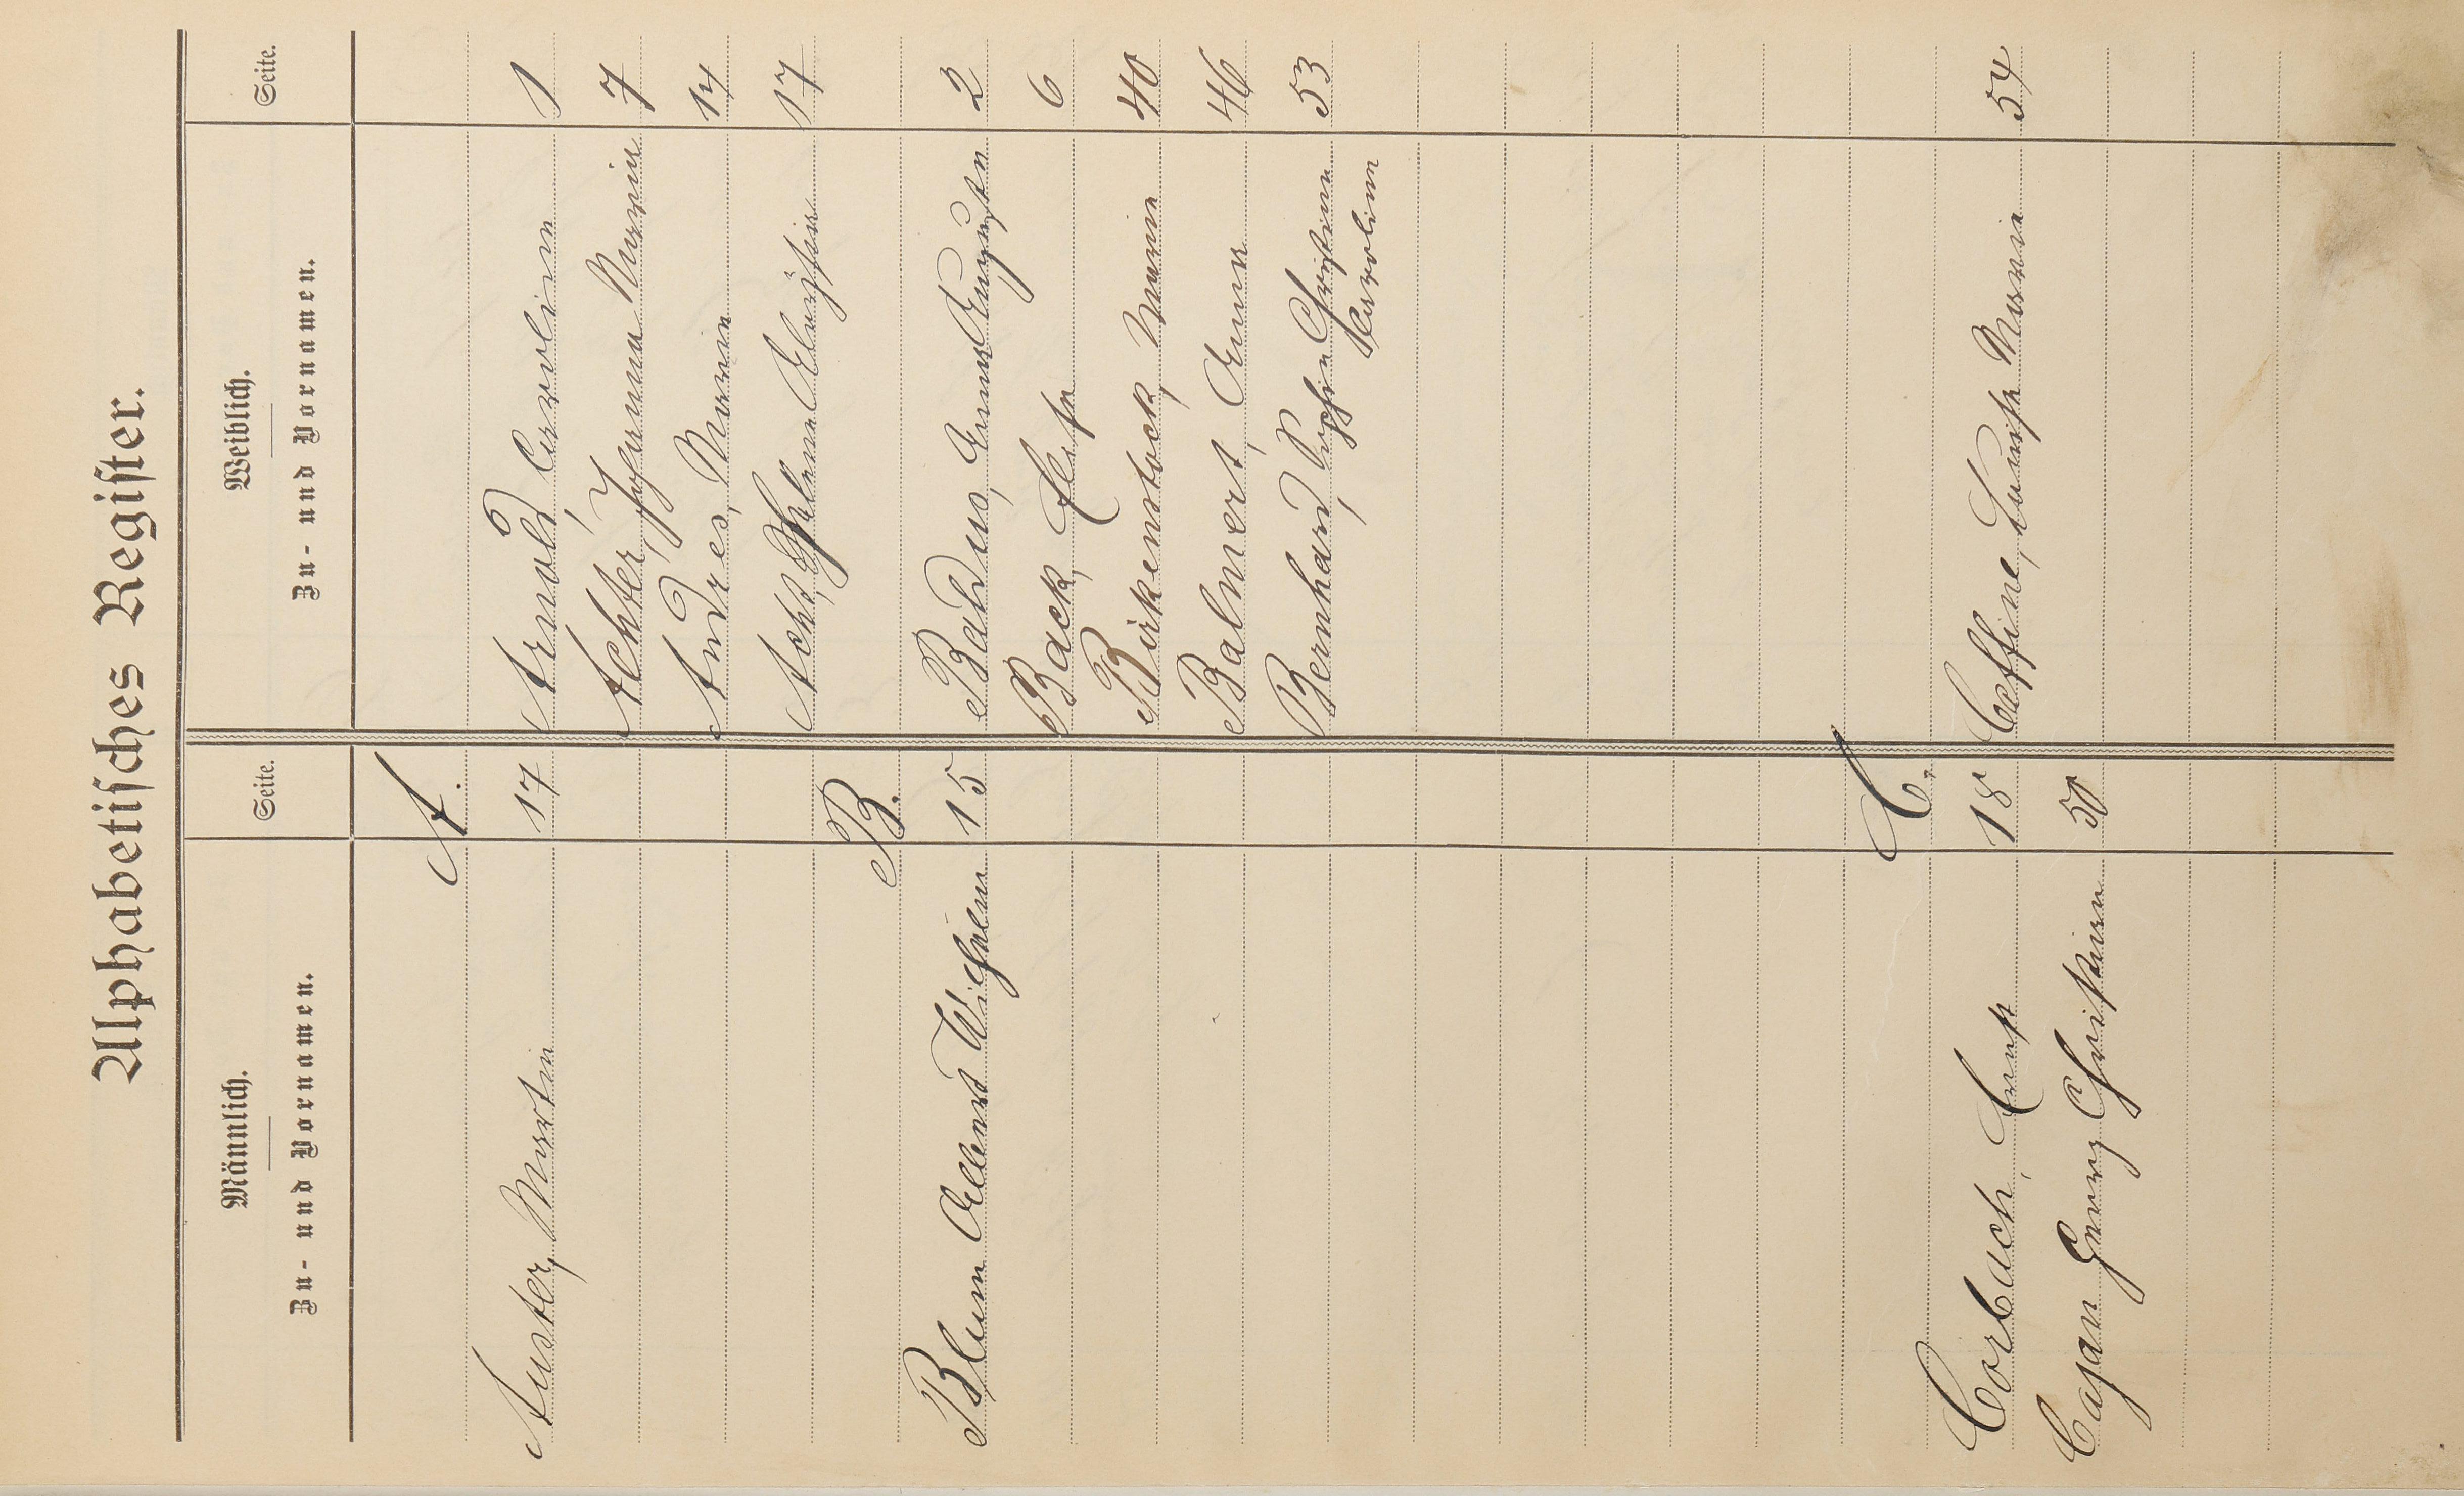 Alphabetisches Register.
Männlich. Seite. Weiblich. Seite.
Zu- und Vornamen. Zu- und Vornamen.
A.
Auster, Martin 17 Arnold, Carolina 1
Achter, Johanna Maria 7
Andres, Maria 14
Acht, Helena 17
B.
Blum Albert Wilhelm 15 Baldus, Anna Auguste 2
Back, Elise 6
Birkenstock, Maria 40
Balmert, Anna 46
Bernhard, Sophie Christine 53
Karoline
C.
Corbach, Ernst 18 Caffine, Luise Maria 54
Cajan Georg Christian 50